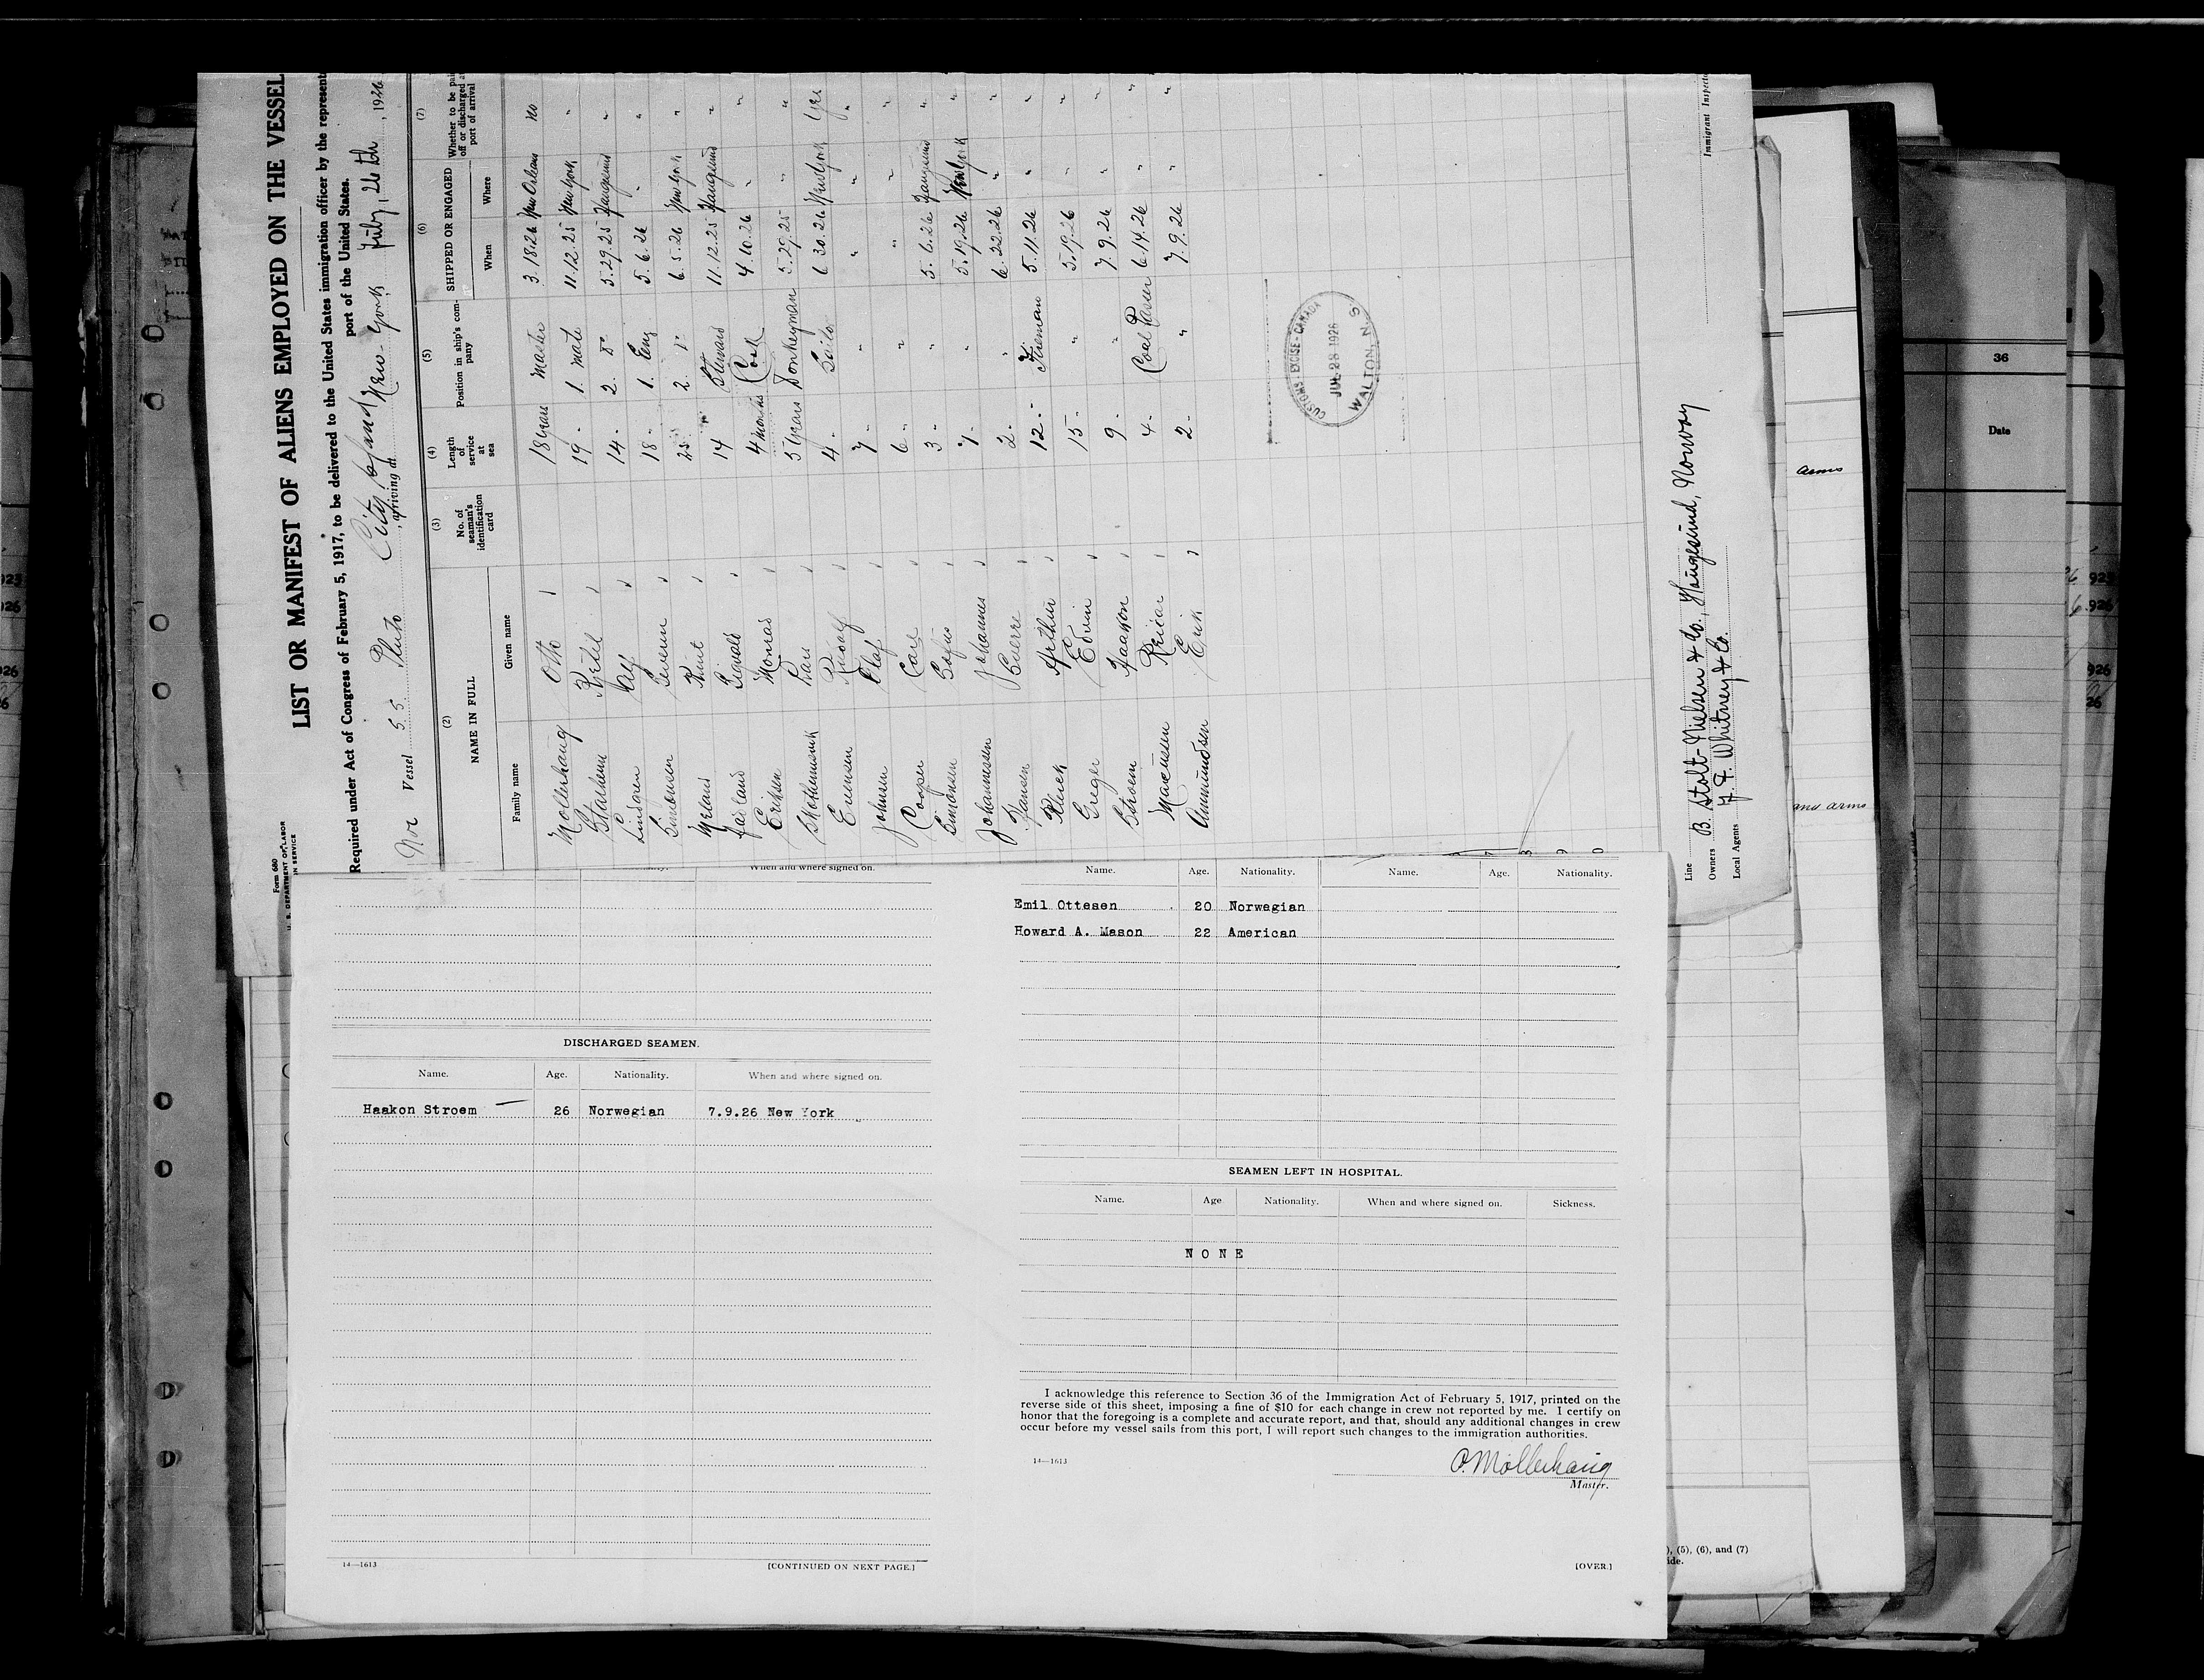 Form 680
U. S. DEPARTMENT OF LABOR
LIST OR MANIFEST OF ALIENS EMPLOYED ON THE VESSEL
Required under Act of Congress of February 5, 1917, to be delivered to the United States immigration officer by the represent
port of the United States.
Nor Vessel S.S. Pluto City Island, arriving at New-York July, 26th, 1926
(2) (3) (4) (5) (6) (7)
NAME IN FULL
Family name Given name
No. of seaman's identification card
Length of service at sea
Position in ship's company
SHIPPED OR ENGAGED
When Where
Whether to be paid off or discharged at port of arrival
Mollerhaug Otto 18 years Master 3.18.26 New Orleans no
Starheim Kitil 19 - 1. Mate 11.12.25 New York "
Lindgren Alf 14 - 2. D° 5.29.25 Haugesund "
Simonsen Severin 18 - 1. Eng 5.6.26 " "
Meland Knut 25 - 2. D° 6.5.26 New York "
Sivald 14 Steward 11.12.25 Haugesund "
Eriksen Monrad 4 months Cook 4.10.26 " "
3 years Donkeyman 5.29.25 " "
Evensen 4 - Sailor 6.30.26 New York Yes
Johnsen Olaf 7 - " " " "
Cooper Carl 6 - " " " "
Simonsen Sofus 3 - " 5.6.26 Haugesund "
Johannessen Johannes 7 - " 5.19.26 New York "
Hansen Sverre 2 - " 6.22.26 " "
Arthur 12 - Fireman 5.11.26 " "
Greger Edvin 15 - " 5.19.26 " "
Stroem Haakon 9 - " 7.9.26 " "
Reidar 4 - Coal Passer 6.14.26 " "
Ammundsen Erik 2 - " 7.9.26 " "
CUSTOMS-EXCISE-CANADA
JUL 28 1926
WALTON, N.S.
Line
Owners B. Stolt-Nielsen & Co., Haugesund, Norway
Local Agents J. F. Whitney & Co.
Immigrant Inspector
When and where signed on.
DISCHARGED SEAMEN.
Name. Age. Nationality. When and where signed on.
Haakon Stroem 26 Norwegian 7.9.26 New York
14—1613 [CONTINUED ON NEXT PAGE.]
Name. Age. Nationality. Name. Age. Nationality.
Emil Ottesen 20 Norwegian
Howard A. Mason 22 American
SEAMEN LEFT IN HOSPITAL.
Name. Age Nationality. When and where signed on. Sickness.
NONE
I acknowledge this reference to Section 36 of the Immigration Act of February 5, 1917, printed on the
reverse side of this sheet, imposing a fine of $10 for each change in crew not reported by me. I certify on
honor that the foregoing is a complete and accurate report, and that, should any additional changes in crew
occur before my vessel sails from this port, I will report such changes to the immigration authorities.
14—1613
O. Mollerhaug
Master.
[OVER.]
36
Date
arms
and arms
), (5), (6), and (7)
ide.